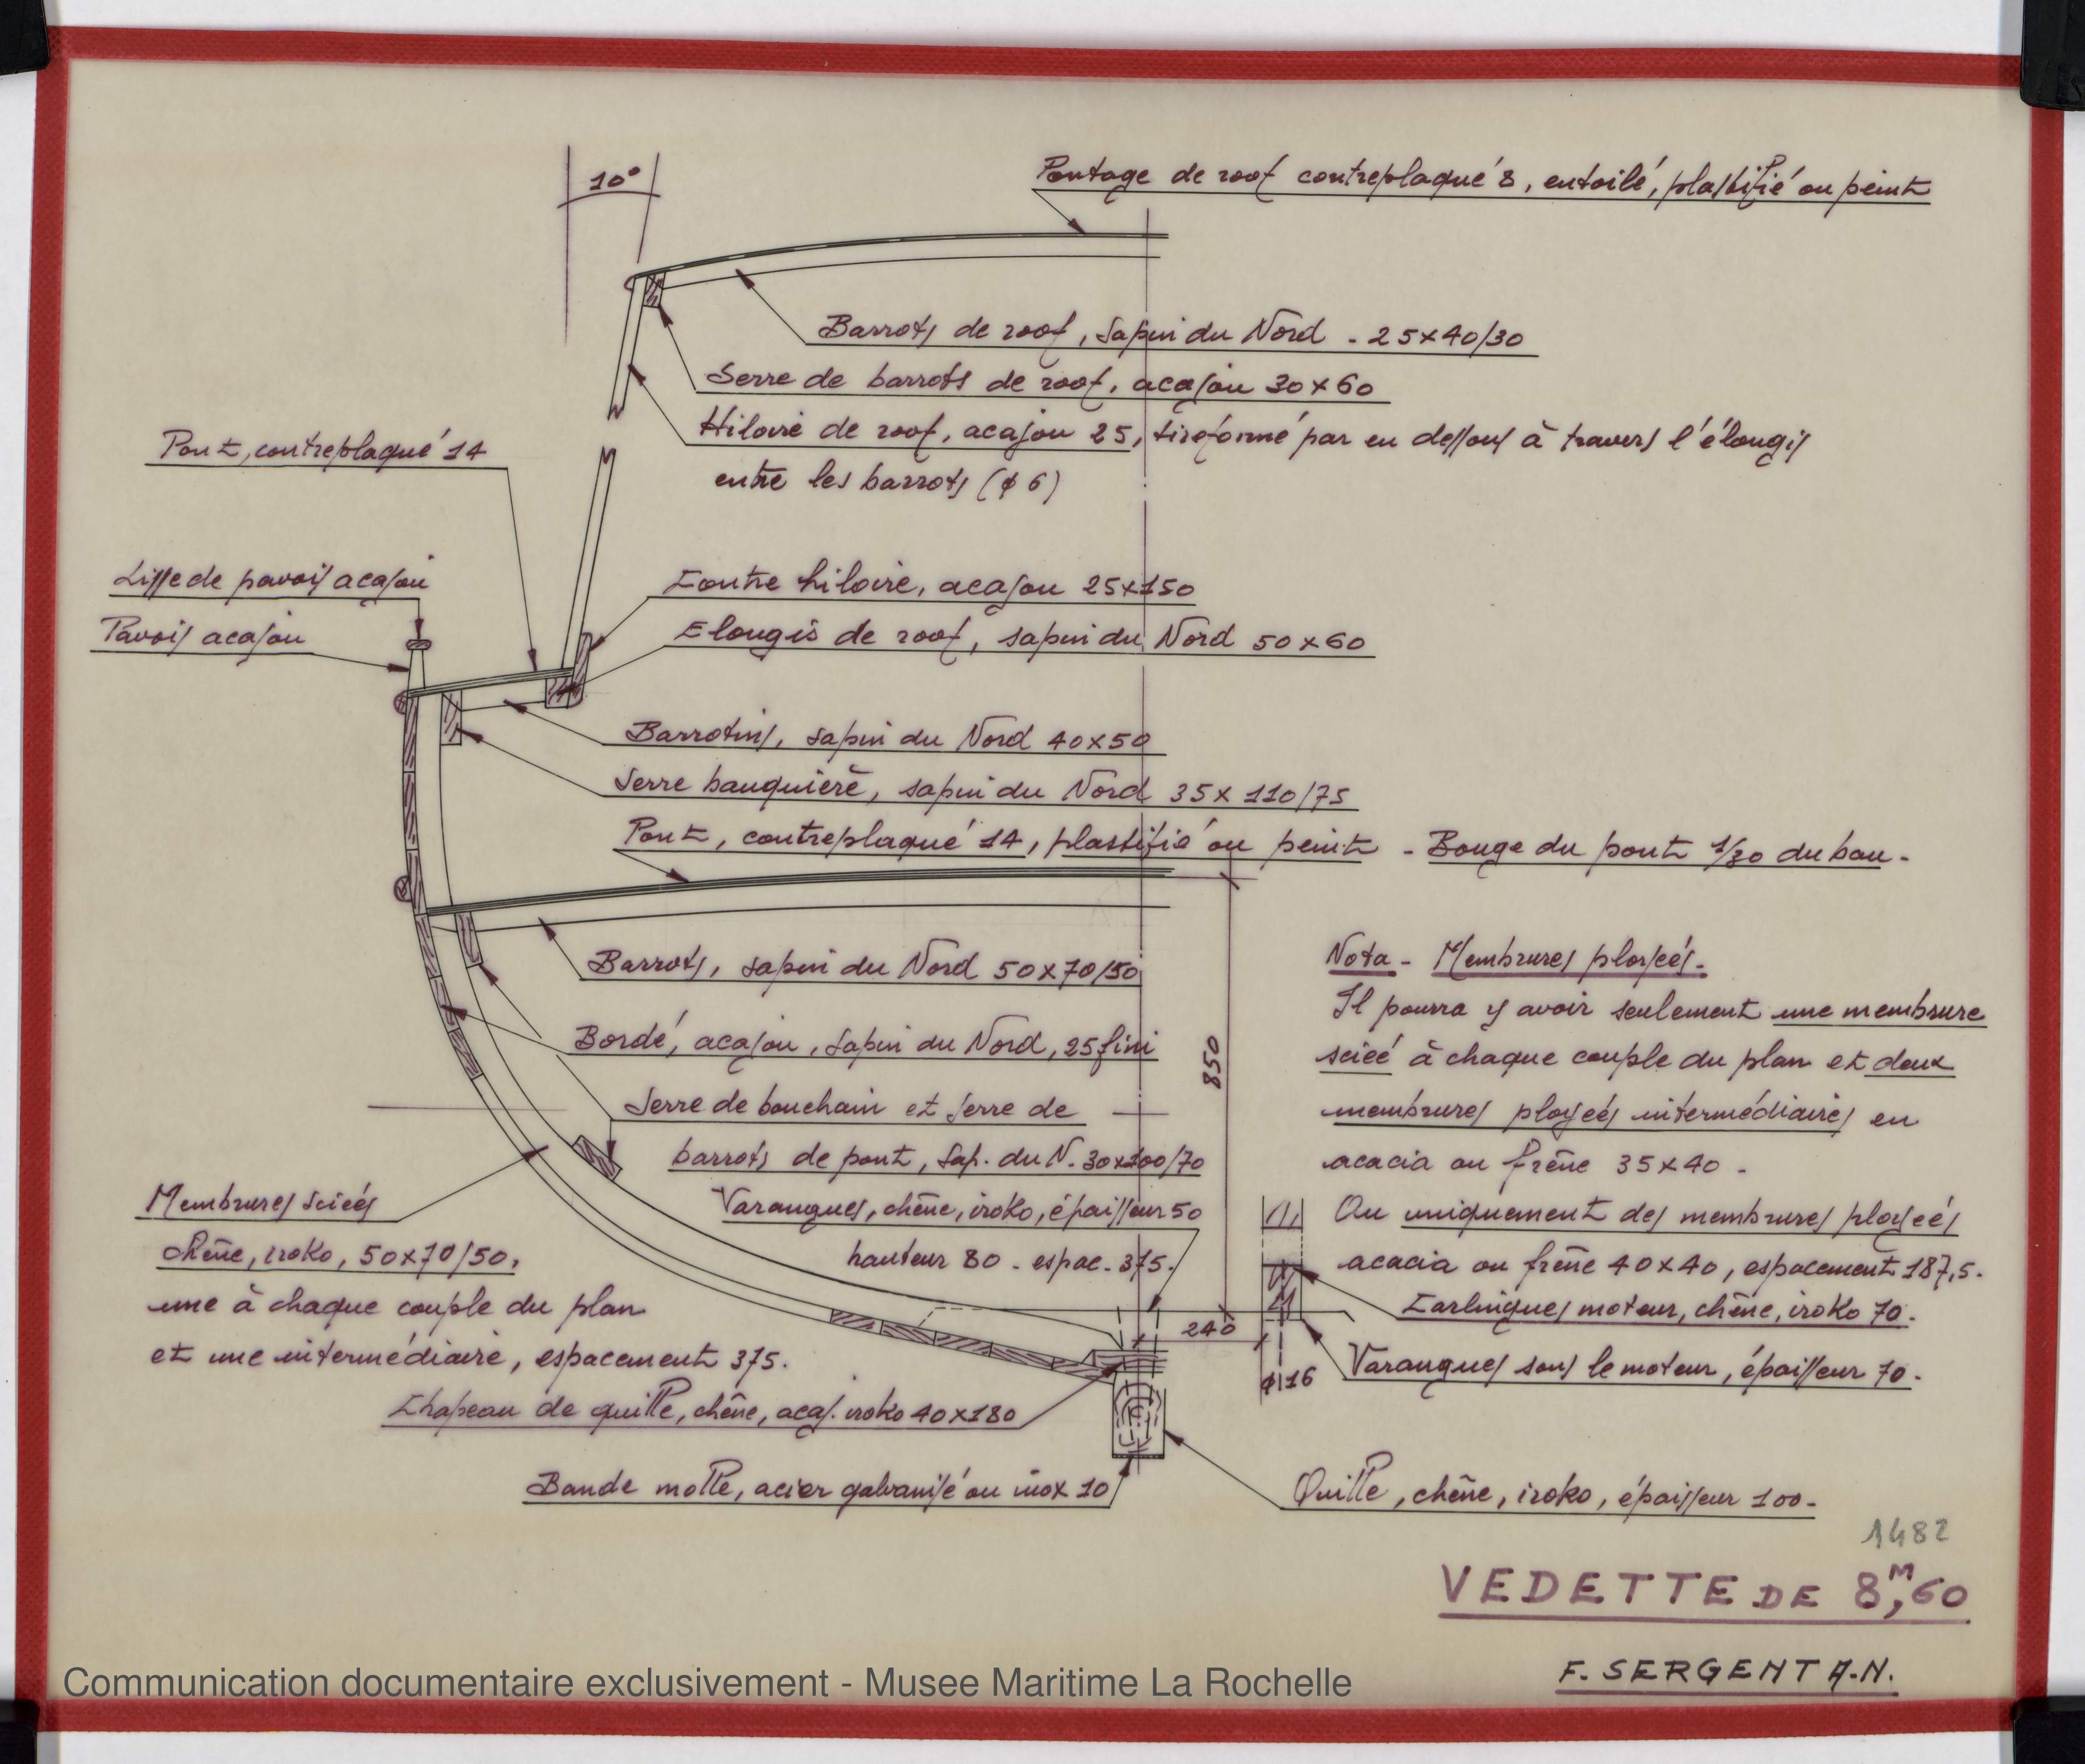 10°
Pontage de roof contreplaqué 8, entoilé, plastifié ou peint
Barrots de roof, sapin du Nord - 25x40/30
Serre de barrots de roof, acajou 30x60
Hiloire de roof, acajou 25, tirefonné par en dessous à travers l'élongis
entre les barrots (φ 6)
Pont, contreplaqué 14
Lisse de pavois acajou
Pavois acajou
Contre hiloire, acajou 25x150
Elongis de roof, sapin du Nord 50x60
Barrotins, sapin du Nord 40x50
Serre bauquière, sapin du Nord 35x110/75
Pont, contreplaqué 14, plastifié ou peint - Bouge du pont 1/30 du bau -
Barrots, sapin du Nord 50x70/50
Bordé, acajou, sapin du Nord, 25 fini
Serre de bouchain et serre de
barrots de pont, Sap. du N. 30x100/70
850
Nota - Membrures ployées -
Il pourra y avoir seulement une membrure
sciée à chaque couple du plan et deux
membrures ployées intermédiaires en
acacia ou frêne 35x40 -
Ou uniquement des membrures ployées
acacia ou frêne 40x40, espacement 187,5 -
Varangues, chêne, iroko, épaisseur 50
hauteur 80 - espac. 375.
Membrures sciées
chêne, iroko, 50x70/50,
une à chaque couple du plan
et une intermédiaire, espacement 375.
Carlingues moteur, chêne, iroko 70.
240
φ 16
Varangues sous le moteur, épaisseur 70.
Chapeau de quille, chêne, acaj. iroko 40x180
Bande molle, acier galvanisé ou inox 10
Quille, chêne, iroko, épaisseur 100 -
1482
VEDETTE DE 8M,60
F. SERGENT A.N.
Communication documentaire exclusivement - Musee Maritime La Rochelle